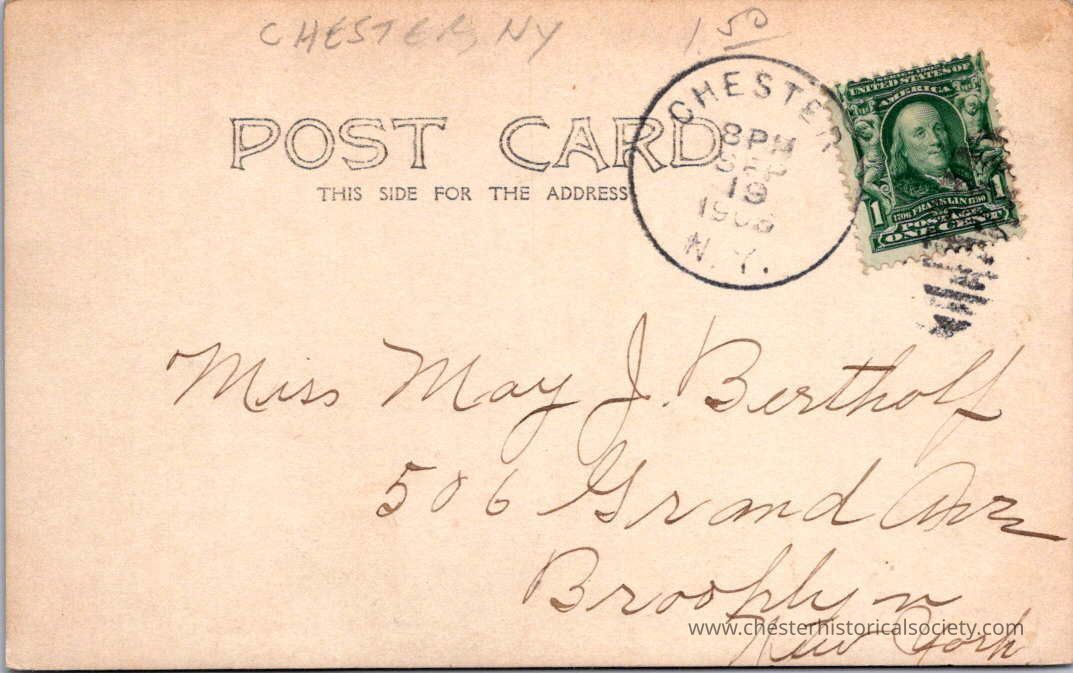 CHESTER, NY 1.50
POST CARD
THIS SIDE FOR THE ADDRESS
CHESTER
8 PM
SEP
19
N.Y.
SERIES 1902
UNITED STATES OF
AMERICA
1 1
1706 FRANKLIN 1790
POSTAGE
ONE CENT
Miss May J. Bertholf
506 Grand Ave
Brooklyn
New York
www.chesterhistoricalsociety.com